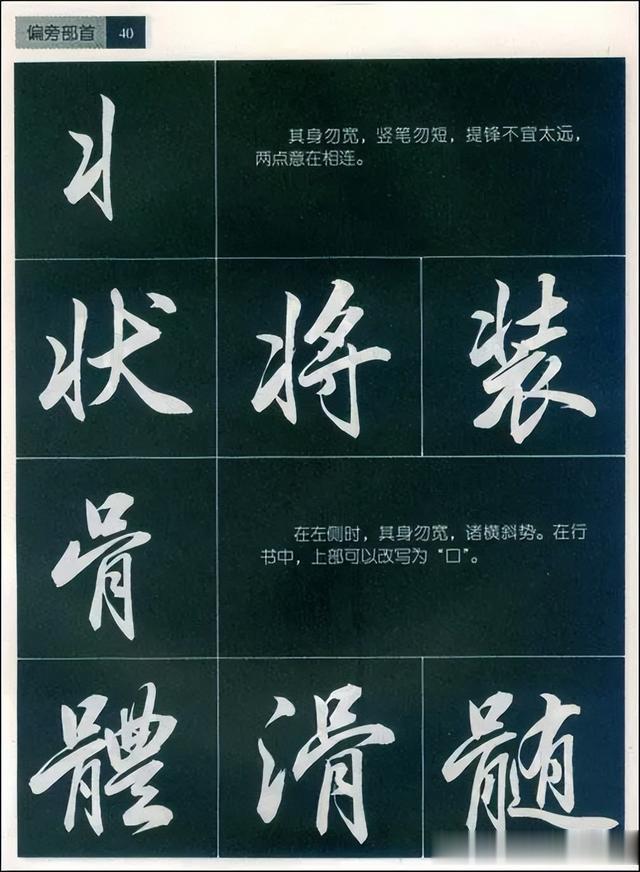 偏旁部首 40
丬
其身勿宽，竖笔勿短，提锋不宜太远，
两点意在相连。
状 将 装
骨
在左侧时，其身勿宽，诸横斜势。在行
书中，上部可以改写为“口”。
體 滑 髓